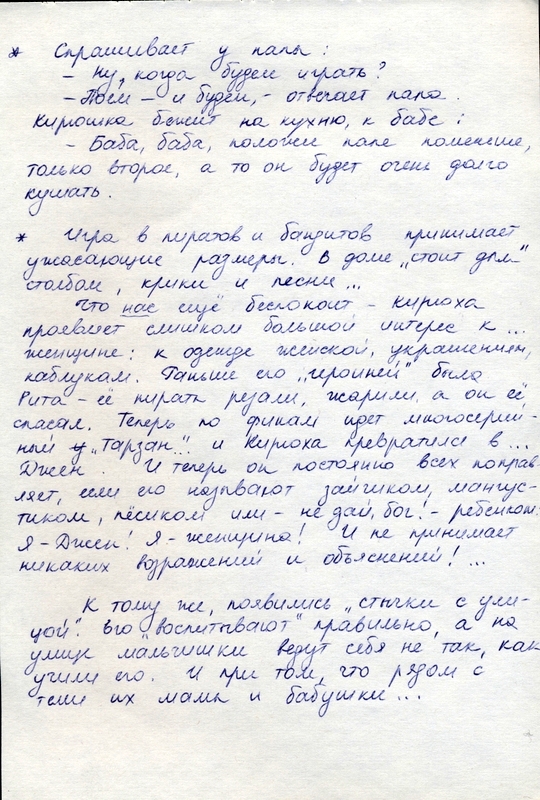 * Спрашивает у папы:
– Ну, когда будем играть?
– Поем – и будем, – отвечает папа.
Кирюшка бежит на кухню, к бабе:
– Баба, баба, положи папе поменьше,
только второе, а то он будет очень долго
кушать.
* Игра в пиратов и бандитов принимает
ужасающие размеры. В доме „стоит дым"
столбом, крики и песни...
Что нас ещё беспокоит – Кирюха
проявляет слишком большой интерес к...
женщине: к одежде женской, украшениям,
каблукам. Раньше его „героиней" была
Рита – её пираты резали, жарили, а он её
спасал. Теперь по финам идет многосерий-
ный „Тарзан"... и Кирюха превратился в...
Джен. И теперь он постоянно всех поправ-
ляет, если его называют зайчиком, мангус-
тиком, пёсиком или – не дай, бог! – ребёнком:
Я – Джен! Я – женщина! И не принимает
никаких возражений и объяснений!...
К тому же, появились „стычки с ули-
цой". Его „воспитывают" правильно, а на
улице мальчишки ведут себя не так, как
учили его. И при том, что рядом с
теми их мамы и бабушки...